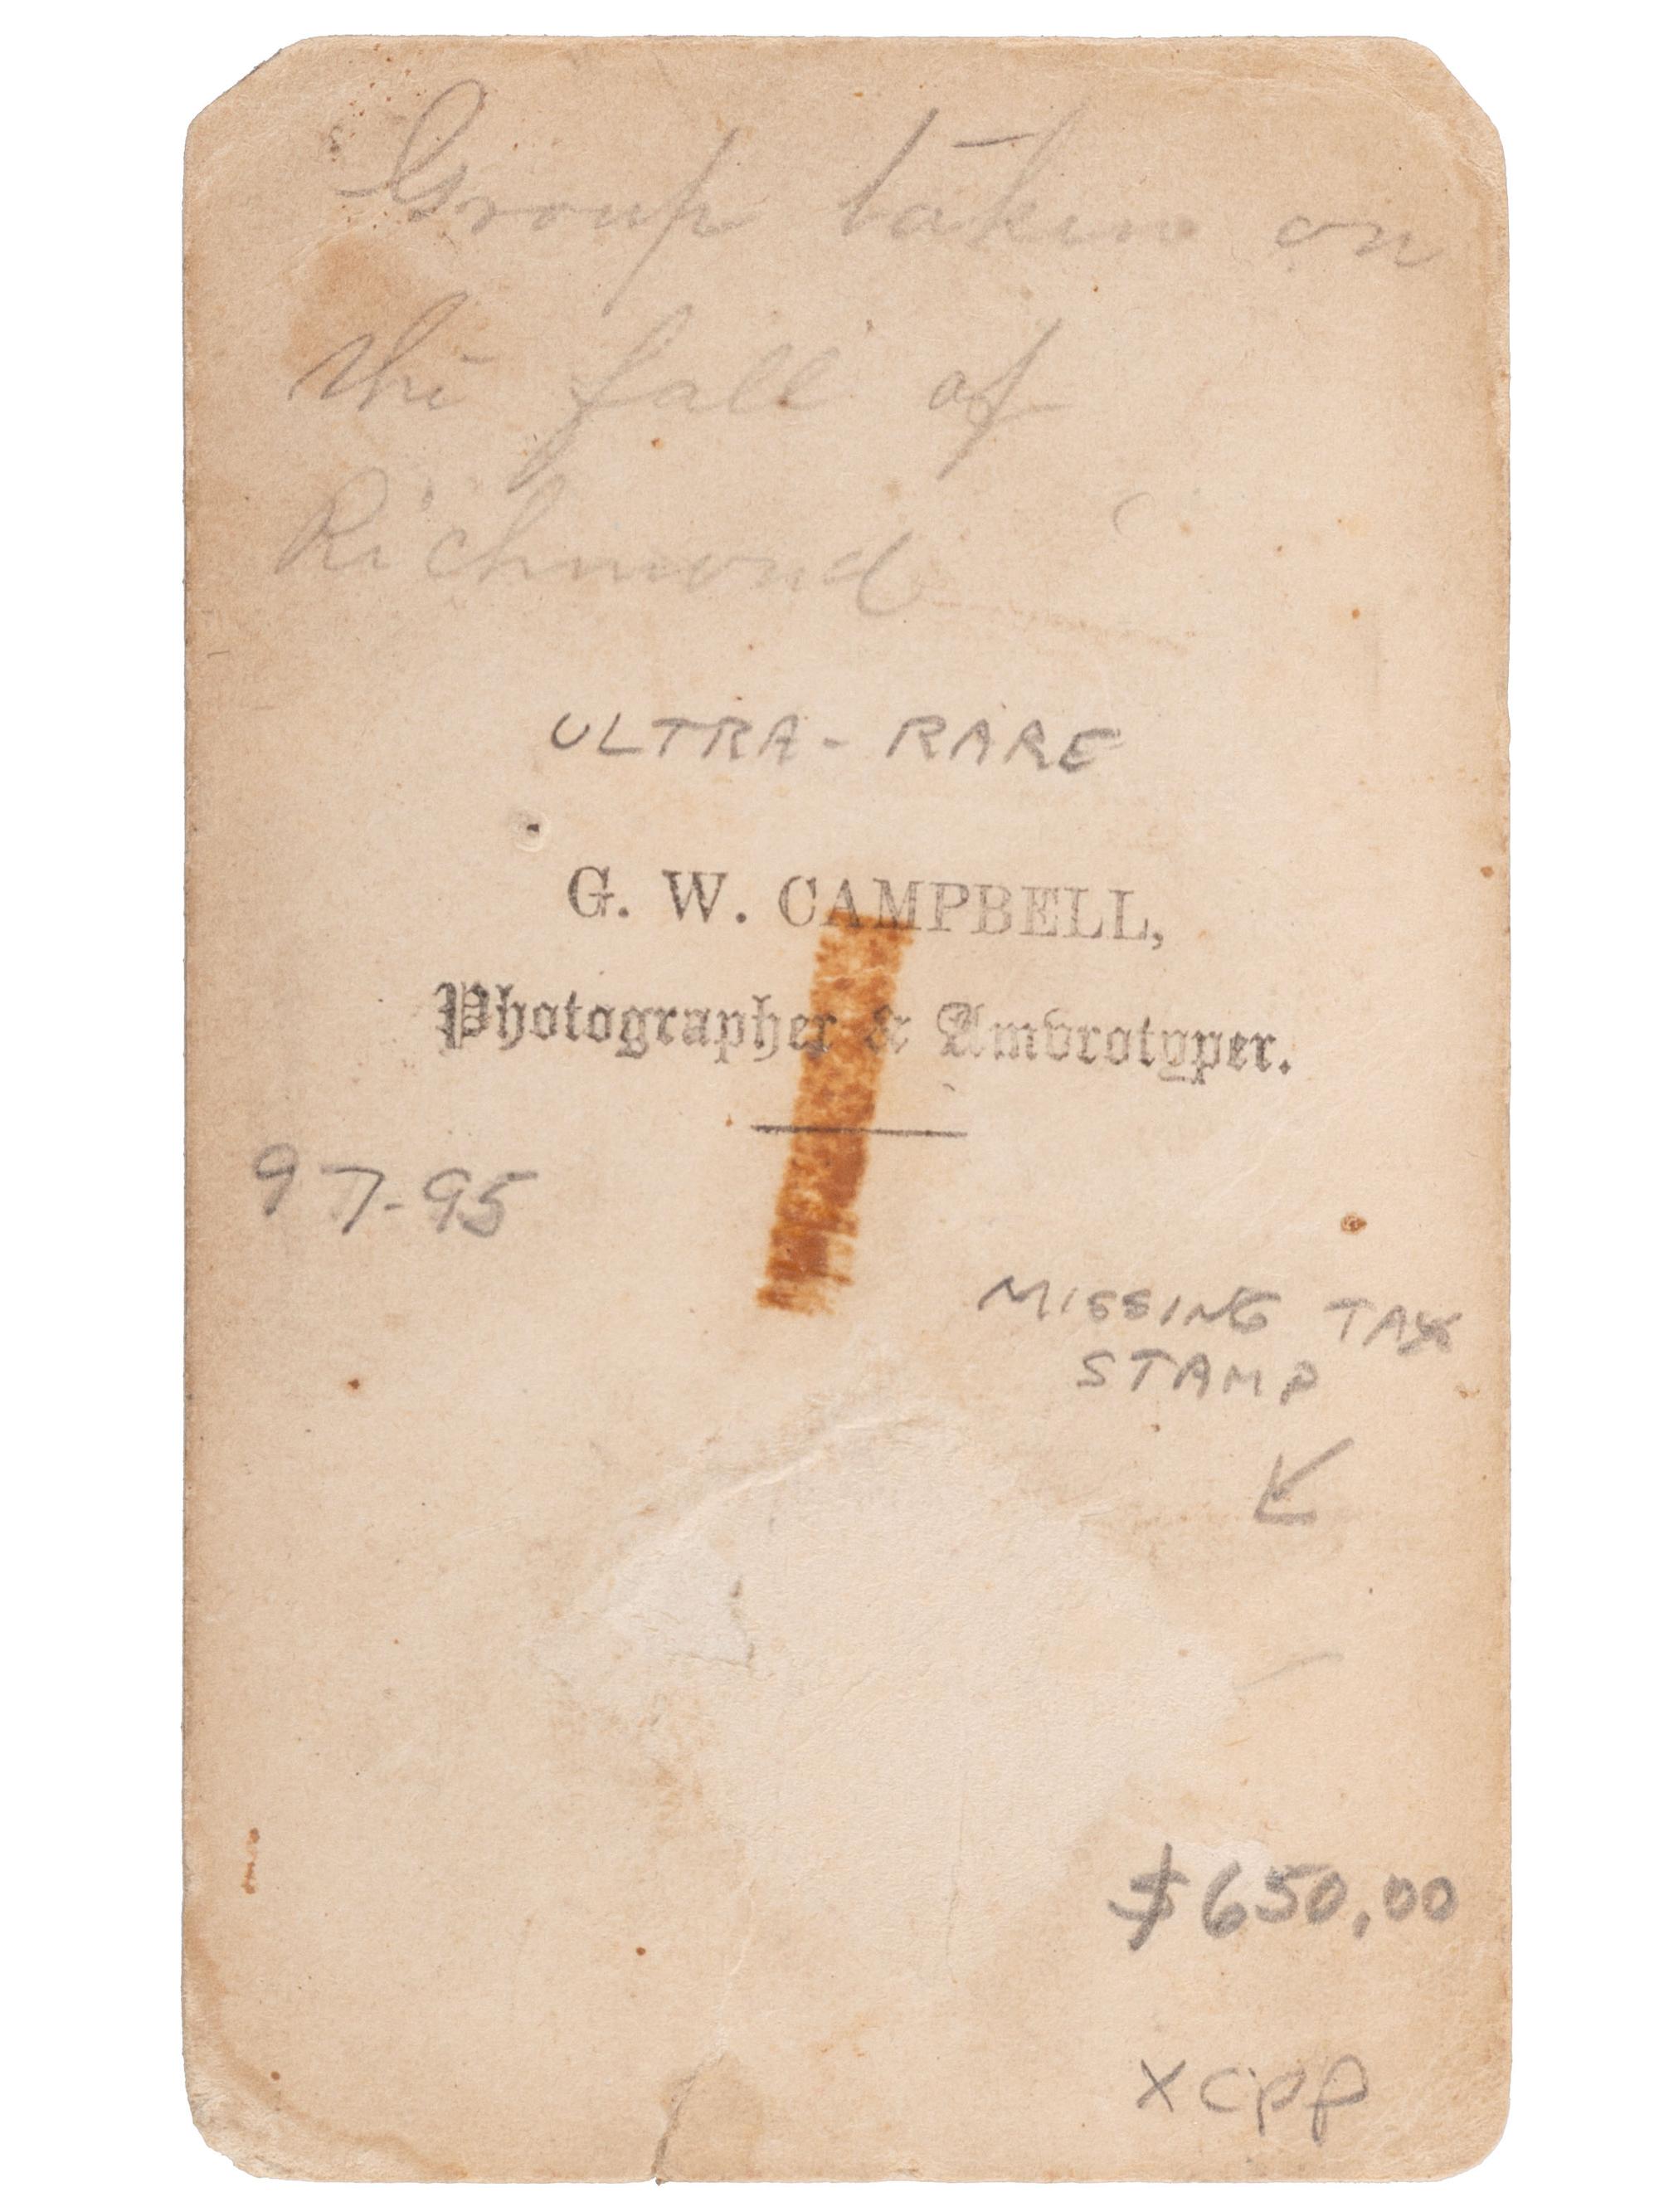 Group taken on
the fall of
Richmond
ULTRA-RARE
G. W. CAMPBELL,
Photographer & Ambrotyper.
97-95
MISSING TAX
STAMP
$650.00
xcpp